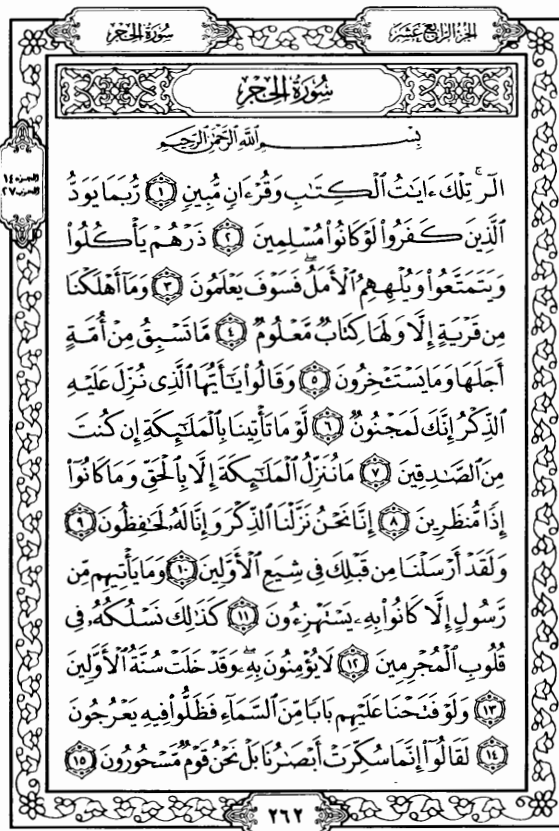 سُورَةُ الحِجْر
الجُزْءُ الرَّابِعَ عَشَرَ
سُورَةُ الحِجْر
الجزء ١٤
الحزب ٢٧
بِسْمِ اللَّهِ الرَّحْمَٰنِ الرَّحِيمِ
الٓرۚ تِلْكَ ءَايَٰتُ ٱلْكِتَٰبِ وَقُرْءَانٖ مُّبِينٖ ١ رُّبَمَا يَوَدُّ
ٱلَّذِينَ كَفَرُواْ لَوْ كَانُواْ مُسْلِمِينَ ٢ ذَرْهُمْ يَأْكُلُواْ
وَيَتَمَتَّعُواْ وَيُلْهِهِمُ ٱلْأَمَلُۖ فَسَوْفَ يَعْلَمُونَ ٣ وَمَآ أَهْلَكْنَا
مِن قَرْيَةٍ إِلَّا وَلَهَا كِتَابٞ مَّعْلُومٞ ٤ مَّا تَسْبِقُ مِنْ أُمَّةٍ
أَجَلَهَا وَمَا يَسْتَـْٔخِرُونَ ٥ وَقَالُواْ يَٰٓأَيُّهَا ٱلَّذِي نُزِّلَ عَلَيْهِ
ٱلذِّكْرُ إِنَّكَ لَمَجْنُونٞ ٦ لَّوْ مَا تَأْتِينَا بِٱلْمَلَٰٓئِكَةِ إِن كُنتَ
مِنَ ٱلصَّٰدِقِينَ ٧ مَا نُنَزِّلُ ٱلْمَلَٰٓئِكَةَ إِلَّا بِٱلْحَقِّ وَمَا كَانُوٓاْ
إِذٗا مُّنظَرِينَ ٨ إِنَّا نَحْنُ نَزَّلْنَا ٱلذِّكْرَ وَإِنَّا لَهُۥ لَحَٰفِظُونَ ٩
وَلَقَدْ أَرْسَلْنَا مِن قَبْلِكَ فِي شِيَعِ ٱلْأَوَّلِينَ ١٠ وَمَا يَأْتِيهِم مِّن
رَّسُولٍ إِلَّا كَانُواْ بِهِۦ يَسْتَهْزِءُونَ ١١ كَذَٰلِكَ نَسْلُكُهُۥ فِي
قُلُوبِ ٱلْمُجْرِمِينَ ١٢ لَا يُؤْمِنُونَ بِهِۦۖ وَقَدْ خَلَتْ سُنَّةُ ٱلْأَوَّلِينَ
١٣ وَلَوْ فَتَحْنَا عَلَيْهِم بَابٗا مِّنَ ٱلسَّمَآءِ فَظَلُّواْ فِيهِ يَعْرُجُونَ
١٤ لَقَالُوٓاْ إِنَّمَا سُكِّرَتْ أَبْصَٰرُنَا بَلْ نَحْنُ قَوْمٞ مَّسْحُورُونَ ١٥
٢٦٢